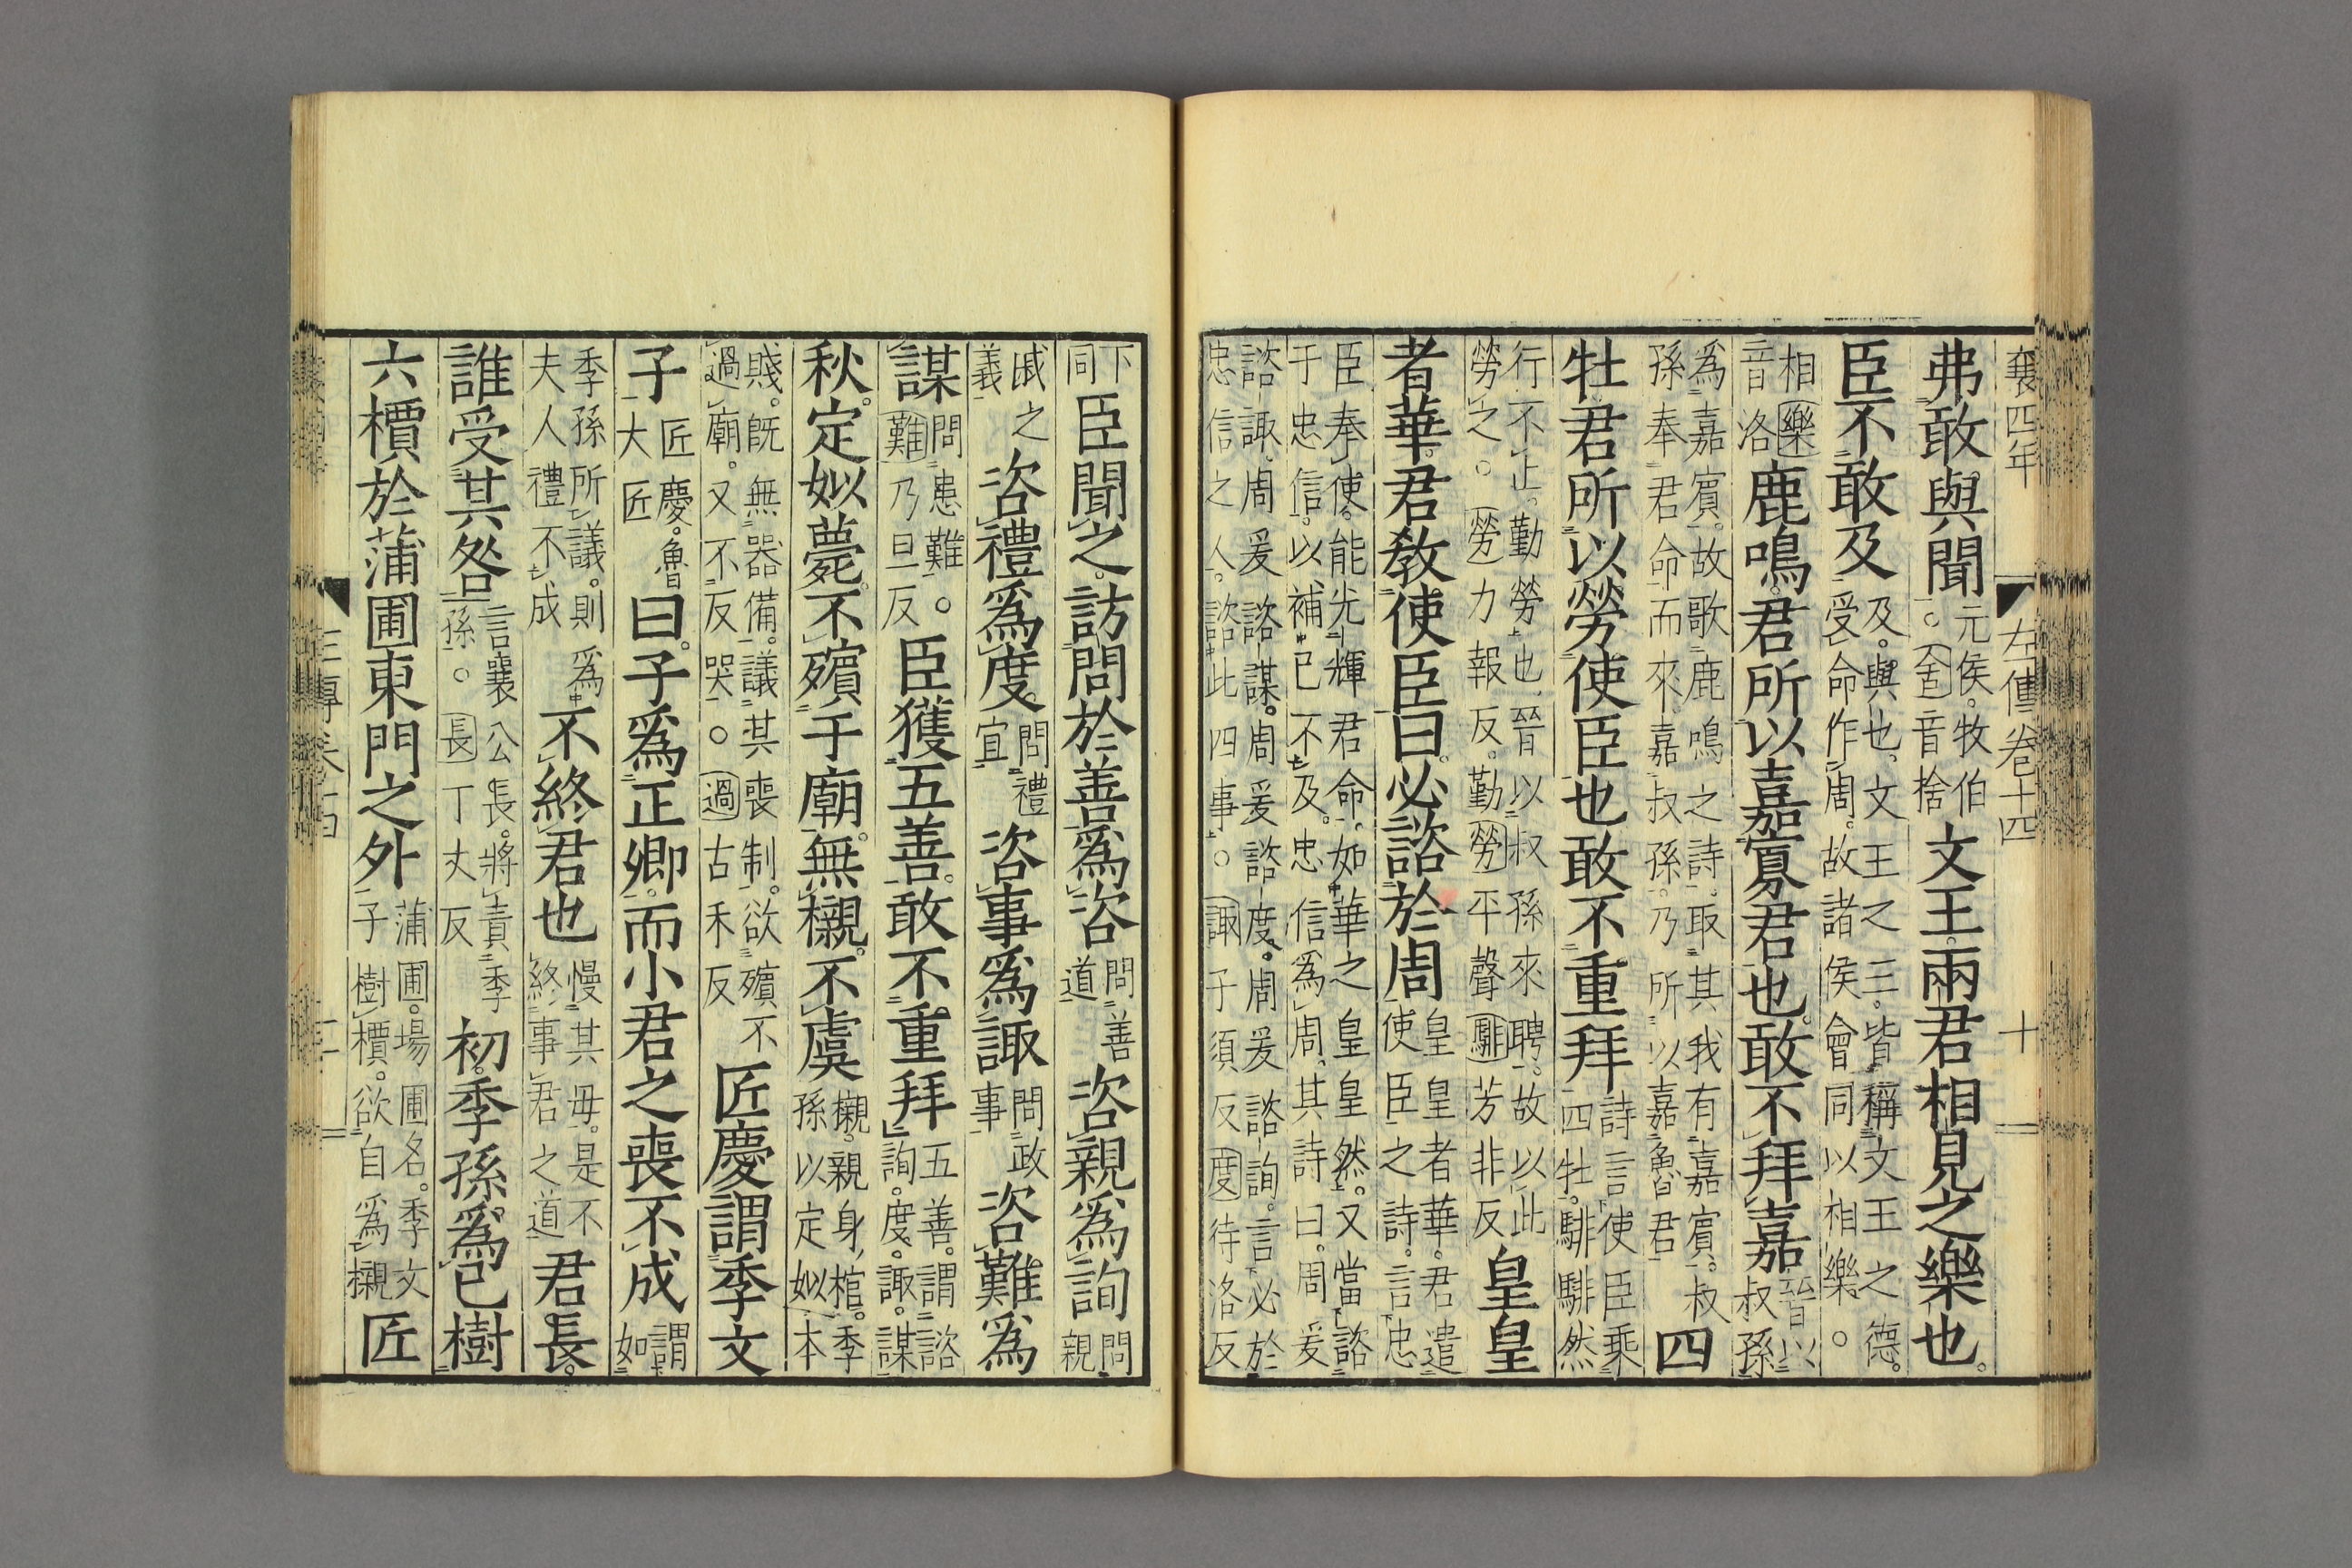 襄四年 左傳卷十四 十
弗敢與聞元侯。牧伯。○舍音捨文王。兩君相見之樂也。
臣不敢及及。與也。文王之三。皆稱文王之德。受命作周。故諸侯會同以相樂。○
相樂音洛鹿鳴。君所以嘉寡君也。敢不拜嘉晉以叔孫
為嘉賓。故歌鹿鳴之詩。取其我有嘉賓。叔孫奉君命而來。嘉叔孫。乃所以嘉魯君四
牡君所以勞使臣也敢不重拜詩言使臣乘四牡。騑騑然
行不止。勤勞也。晉以叔孫來聘。故以此勞之。○勞力報反。勤勞平聲騑芳非反皇皇
者華。君教使臣曰。必諮於周皇皇者華。君遣使臣之詩。言忠
臣奉使。能光輝君命。如華之皇皇然。又當諮于忠信。以補已不及。忠信為周。其詩曰。周爰
諮諏。周爰諮謀。周爰諮度。周爰諮詢。言必於忠信之人。諮此四事。○諏子須反度待洛反
下同臣聞之。訪問於善為咨問善道咨親為詢問親
戚之義咨禮為度。問禮宜咨事為諏問政事咨難為
謀問患難。○難乃旦反臣獲五善。敢不重拜五善。謂諮詢。度。諏。謀
秋。定姒薨。不殯于廟。無櫬。不虞櫬。親身棺。季孫以定姒本
賤。既無器備。議其喪制。欲殯不過廟。又不反哭。○過古禾反匠慶謂季文
子匠慶。魯大匠曰。子為正卿。而小君之喪不成謂如
季孫所議。則為夫人禮不成不終君也慢其母。是不終事君之道君長。
誰受其咎言襄公長。將責季孫。○長丁丈反初。季孫。為己樹
六檟於蒲圃東門之外蒲圃。場圃名。季文子樹檟。欲自為櫬匠